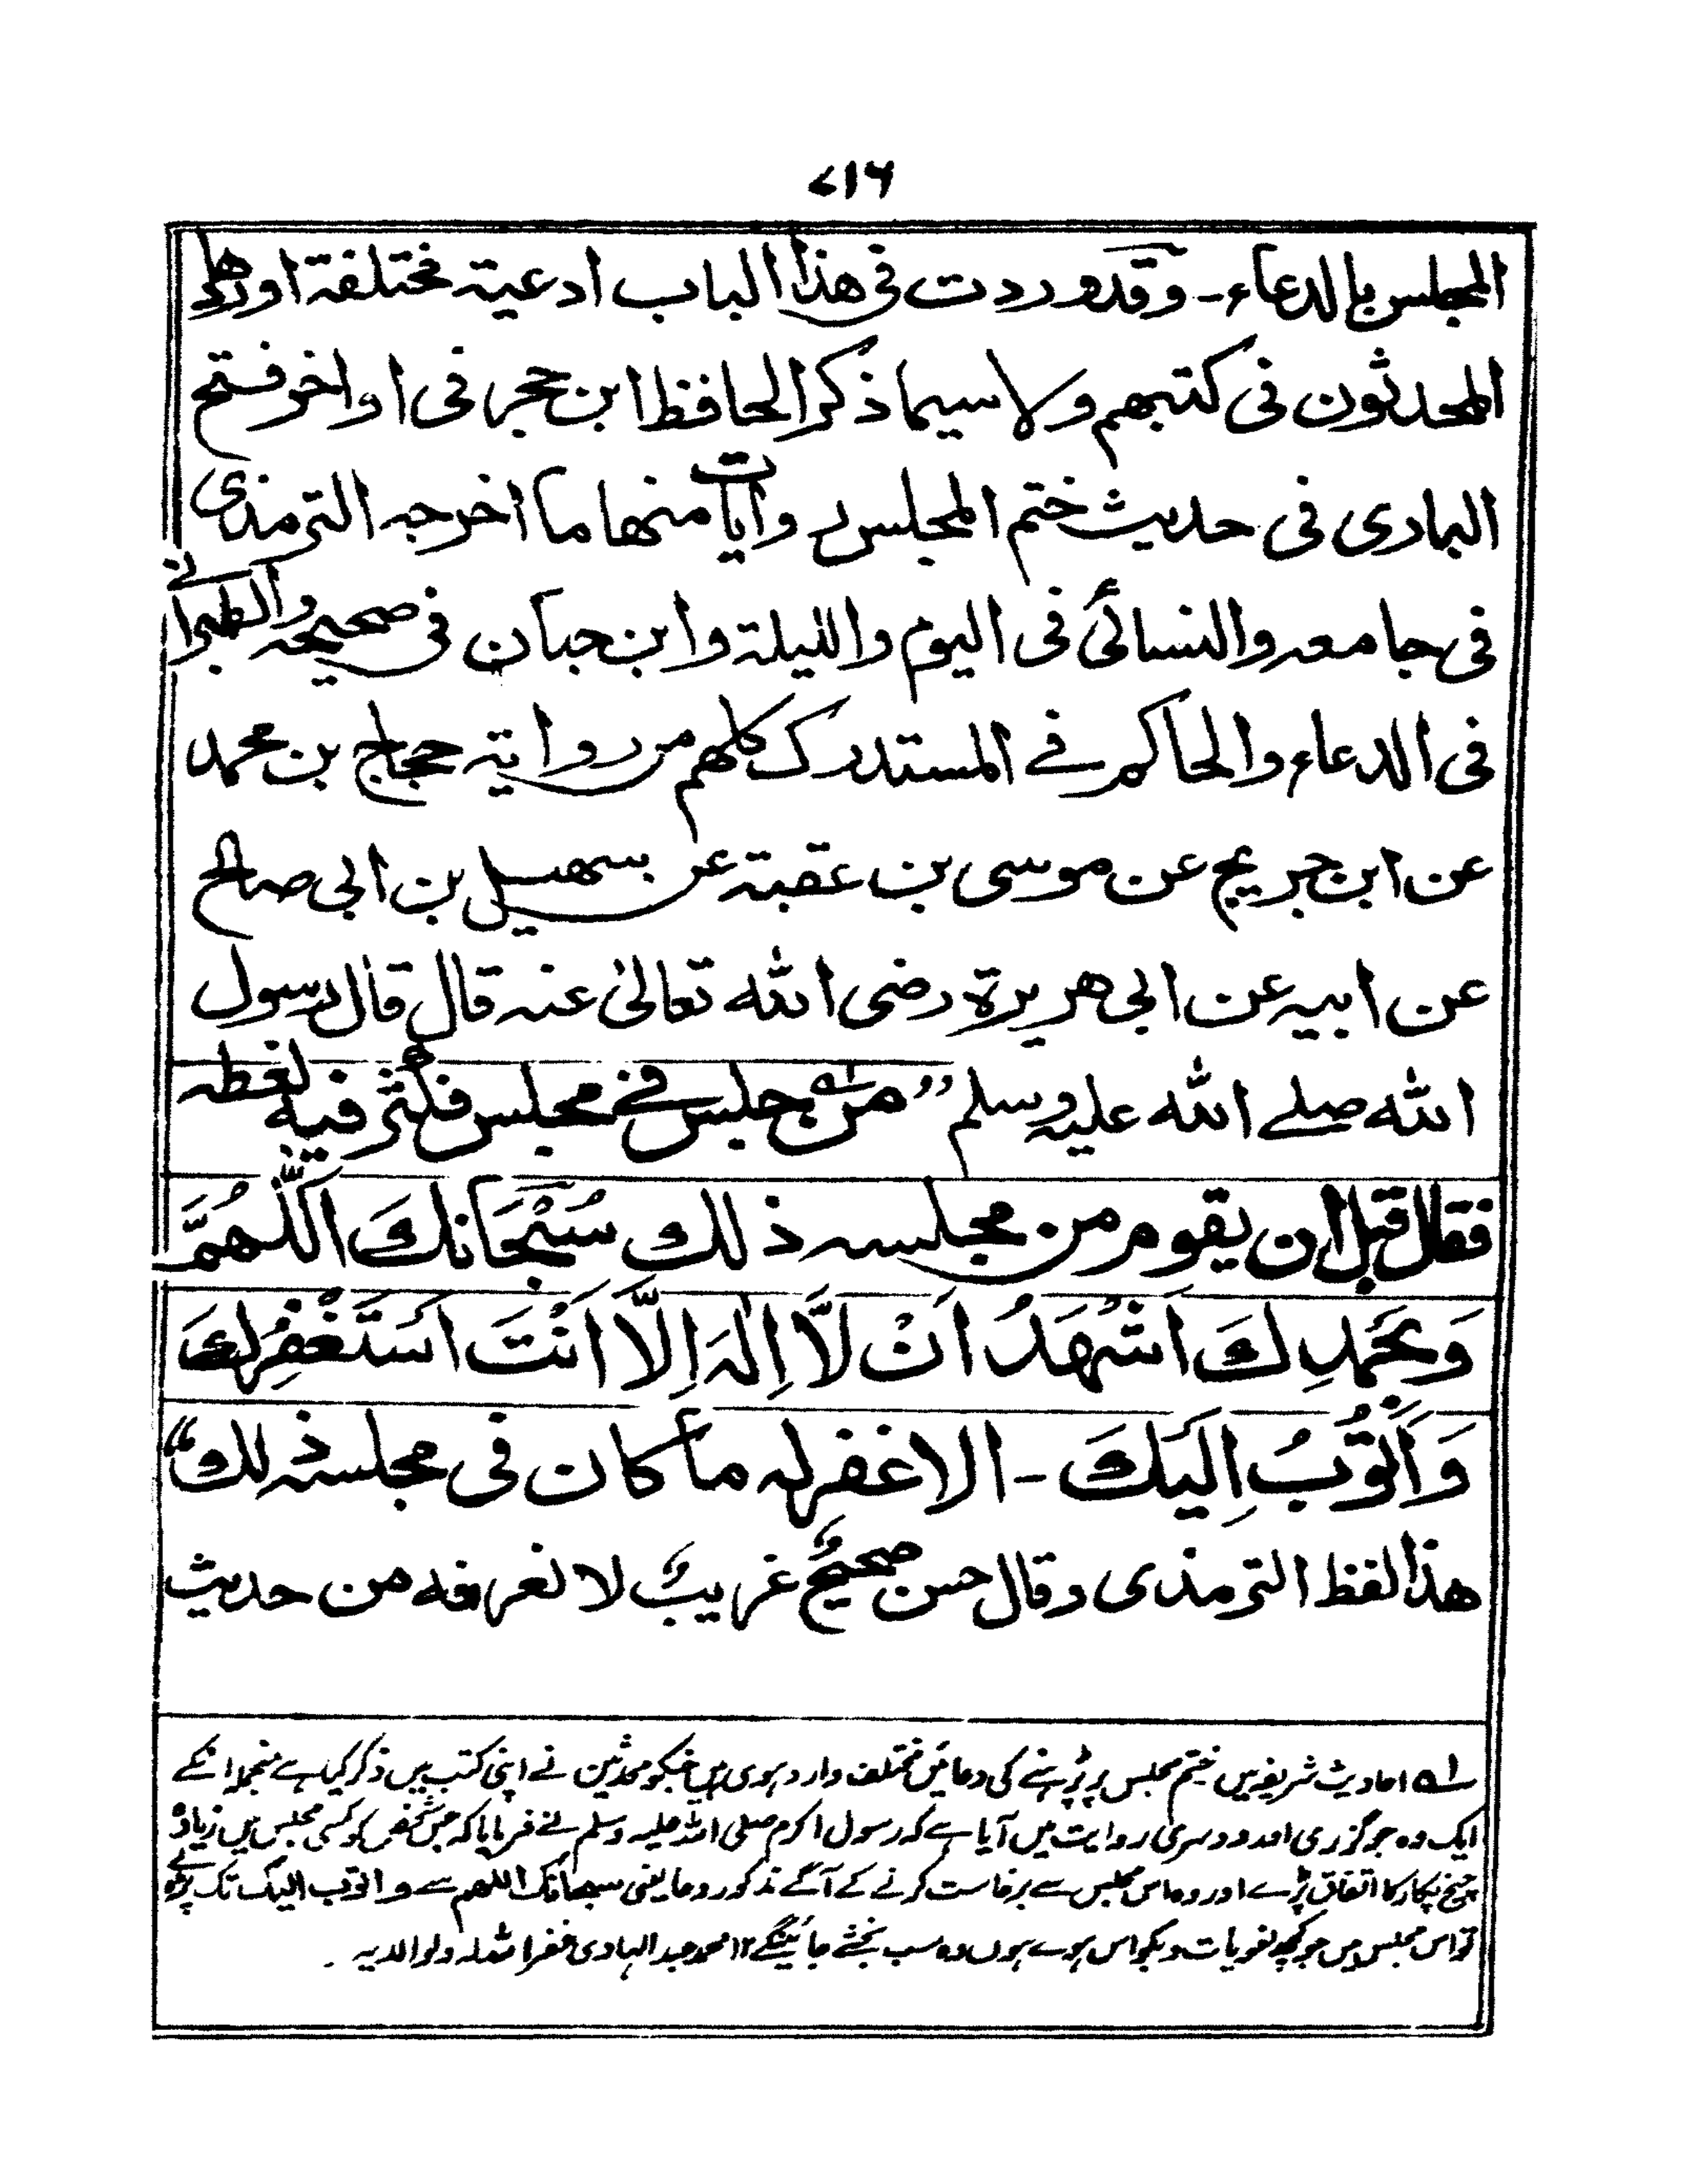 ۷۱۶
المجلس بالدعاء۔ وقد وردت فی هذا الباب ادعیة مختلفة اوردها
المحدثون فی کتبهم ولا سیما ذکر الحافظ ابن حجر فی اواخر فتح
الباری فی حدیث ختم المجلس روایات منها ما اخرجه الترمذی
فی جامعه والنسائی فی الیوم واللیلة وابن حبان فی صحیحه والطبرانے
فی الدعاء والحاکم فے المستدرک کلهم من روایته حجاج بن محمد
عن ابن جریج عن موسی بن عقبة عن سهیل بن ابی صالح
عن ابیه عن ابی هریرة رضی الله تعالیٰ عنه قال قال رسول
الله صلے الله علیه وسلم ”من۱؎ جلس فے مجلس فکثر فیه لغطه
فقال قبل ان یقوم من مجلسه ذلك سُبْحَانَكَ اَللّٰهُمَّ
وَبِحَمْدِكَ اَشْهَدُ اَنْ لَّا اِلٰهَ اِلَّا اَنْتَ اَسْتَغْفِرُكَ
وَاَتُوْبُ اِلَیْكَ ۔ الا غفر له ما کان فی مجلسه ذلك“
هذا لفظ الترمذی وقال حسن صحیحٌ غریبٌ لا نعرفه من حدیث
۱؎ احادیث شریفہ میں ختم مجلس پر پڑہنے کی دعائیں مختلف وارد ہوی ہیں جنکو محدثین نے اپنی کتب میں ذکر کیا ہے منجملہ انکے
ایک وہ جو گزری اور دوسری روایت میں آیا ہے کہ رسول اکرم صلی اللہ علیہ وسلم نے فرمایا کہ جس شخص کو کسی مجلس میں زیادہ
چیخ پکار کا اتفاق پڑے اور وہ اس مجلس سے برخاست کرنے کے آگے مذکور دعا یعنی سبحانک اللهم سے و اتوب الیک تک پڑہ لے
تو اس مجلس میں جو کچھ لغویات و بکواس ہوے ہوں وہ سب بخشے جائینگے ۱۲ محمد عبد الهادی غفر اللہ لہ ولوالدیہ ۔